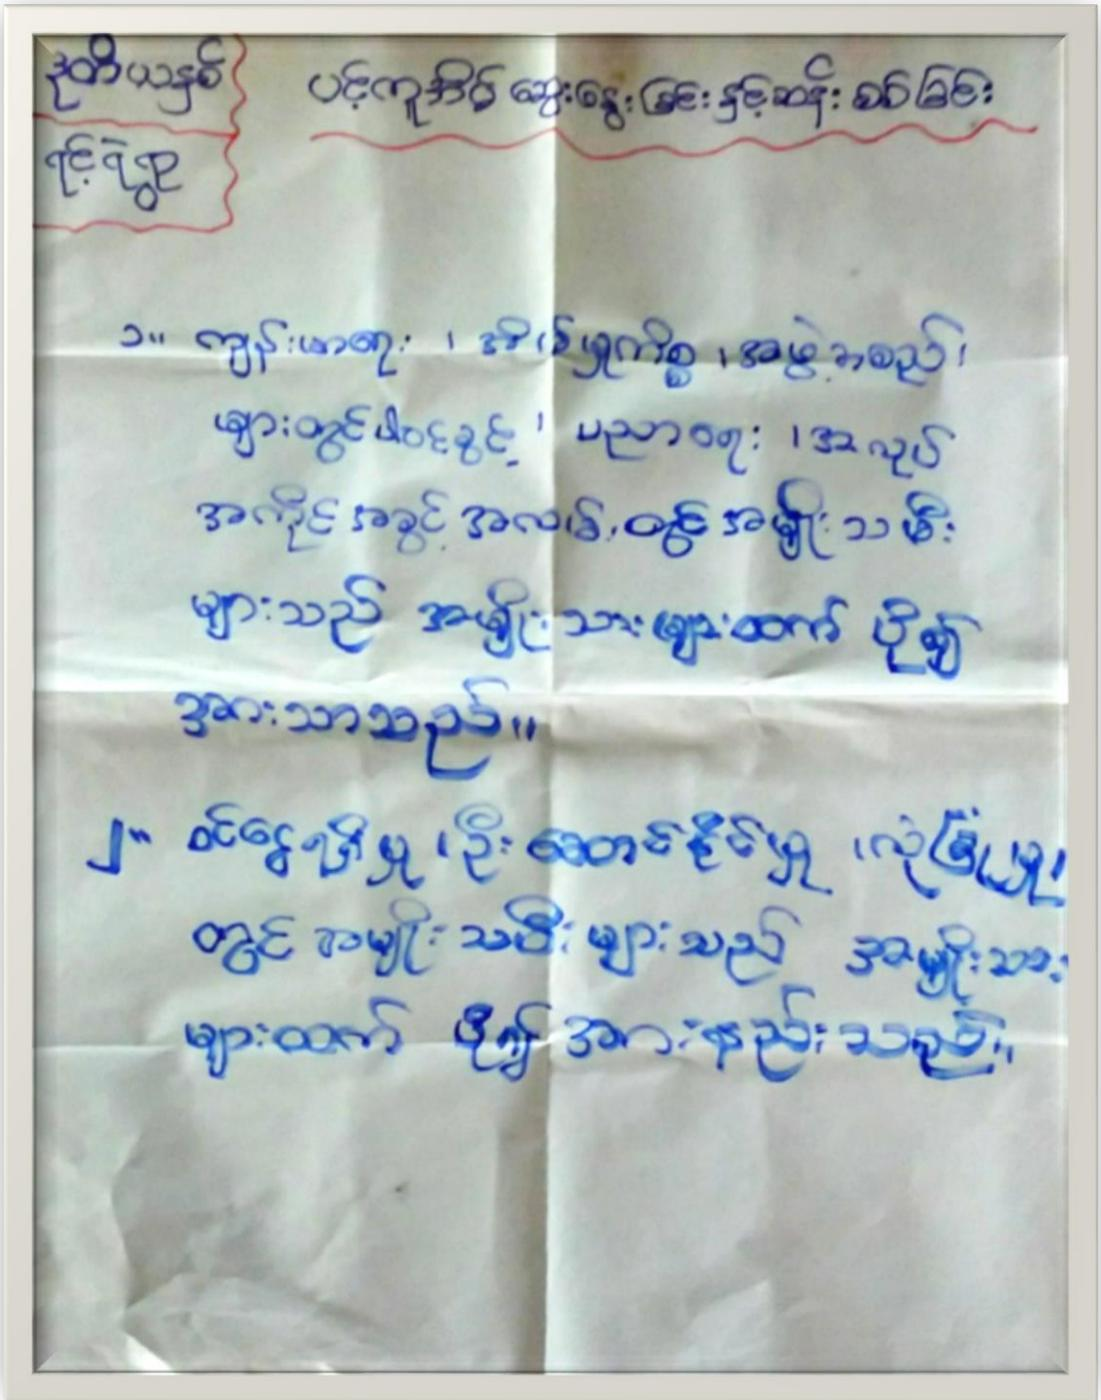 ဒုတိယနှစ်
ရင့်ရဲရွာ
ပင့်ကူအိမ် ဆွေးနွေးခြင်းနှင့်ဆန်းစစ်ခြင်း
၁။ ကျန်းမာရေး ၊ အိမ်မှုကိစ္စ ၊ အဖွဲ့အစည်း
များတွင်ပါဝင်ခွင့် ၊ ပညာရေး ၊ အလုပ်
အကိုင်အခွင့်အလမ်းတွင် အမျိုးသမီး
များသည် အမျိုးသားများထက် ပို၍
အားသာသည်။
၂။ ဝင်ငွေရရှိမှု ၊ ဦးဆောင်နိုင်မှု ၊ လုံခြုံမှု
တွင် အမျိုးသမီးများသည် အမျိုးသား
များထက် ပို၍ အားနည်းသည်။